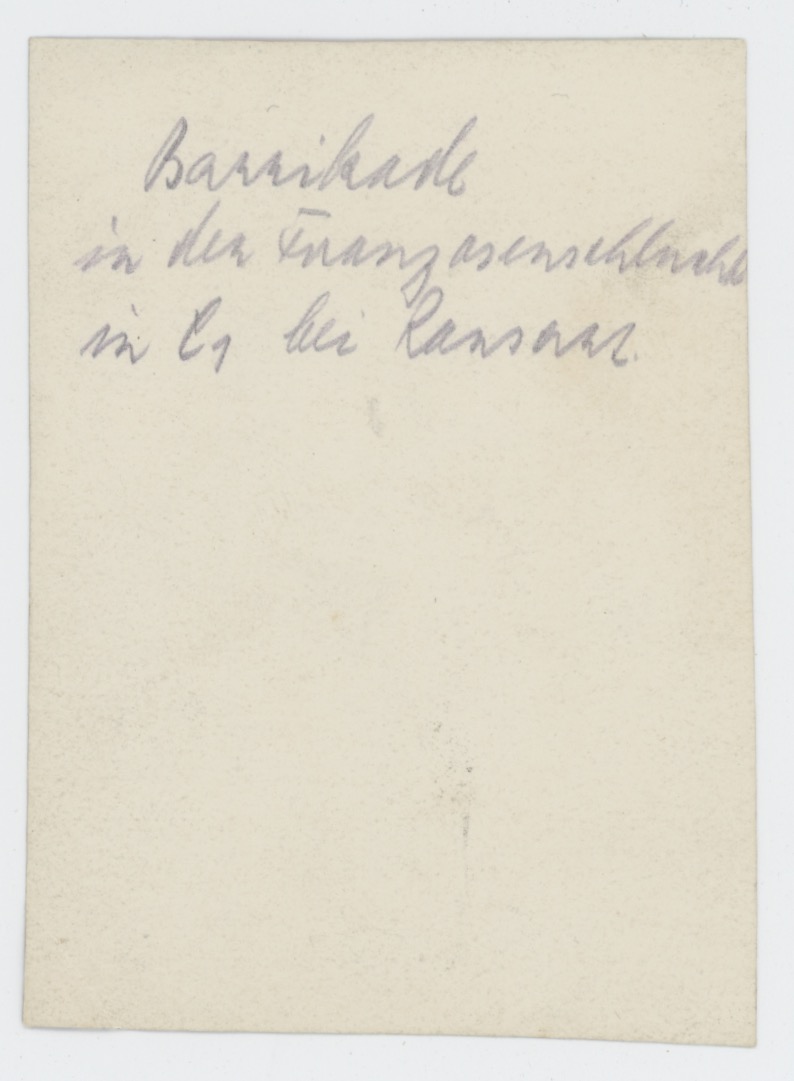 Barrikade
in der Franzosenschlucht
in C1 bei Ransart.